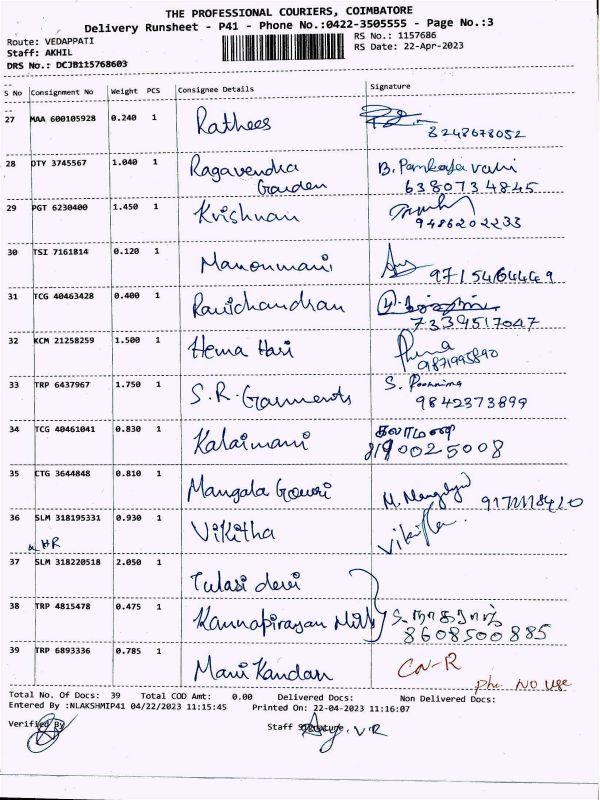 THE PROFESSIONAL COURIERS, COIMBATORE
Delivery Runsheet - P41 - Phone No.:0422-3505555 - Page No.:3
Route: VEDAPPATI
Staff: AKHIL
DRS No.: DCJB115768603
RS No.: 1157686
RS Date: 22-Apr-2023
S No Consignment No Weight PCS Consignee Details Signature
27 MAA 600105928 0.240 1 Rathees
8248678052
28 DTY 3745567 1.040 1 Ragavendha B. Pankaja valli
Garden 6380734845
29 PGT 6230400 1.450 1 Krishnan
9486202233
30 TSI 7161814 0.120 1 Manonmani
9715464449
31 TCG 40463428 0.400 1 Ravichandran
7339517047
32 KCM 21258259 1.500 1 Hema Hari
9871995890
33 TRP 6437967 1.750 1 S.R. Garments S. Poornima
9842373899
34 TCG 40461041 0.830 1 Kalaimani கலாமணி
8190025008
35 CTG 3644848 0.810 1 Mangala Gowri
36 SLM 318195331 0.930 1 Vikitha
HR
37 SLM 318220518 2.050 1 Tulasi devi
38 TRP 4815478 0.475 1 Kannapirayan Mill S. நாகராஜ்
8608500885
39 TRP 6893336 0.785 1 Mani Kandan CN-R
ph. NO USE
Total No. Of Docs: 39 Total COD Amt: 0.00 Delivered Docs: Non Delivered Docs:
Entered By :NLAKSHMIP41 04/22/2023 11:15:45 Printed On: 22-04-2023 11:16:07
Verified By Staff Signature